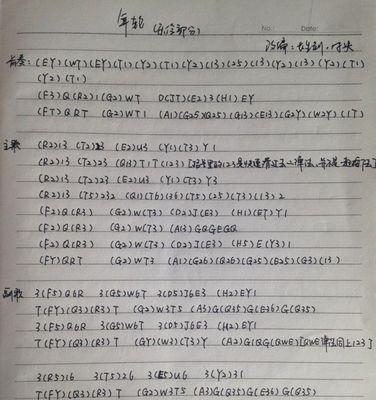 年轮 (主打部分)
No.: Date:
改编:
前奏: (EY)(WT)(EY)(T1)(Y2)(T1)(Y2)(13)(25)(13)(Y2)(13)(Y2)(T1)
(Y2)(T1)
(F3)Q(R2)1(G2)WT D(JT)(E2)3(H1)EY
(FT)QRT (G2)WT1 (A1)(G25)(Q25)(Q13)(E13)(G2Y)(W2Y)(1T)
主歌 (R2)13 (T2)23 (E2)U3 (Y1)(T3)Y1
(R2)13 (T2)23 (Q13)T1T(123)
(R2)13 (T2)23 (E2)U3 (Y1)(T3)Y3
(R2)13 (T5)232 (Q1)(T6)(36)(T5)(25)(T3)(13)2
(F2)Q(R3) (G2)W(T3) (D2)J(E3) (H1)(ET)Y1
(F2)Q(R3) (G2)W(T3) (A13)GQGEQQ
(F2)Q(R3) (G2)W(T3) (D2)J(E3) (H5)E(Y3)1
(FY)QRT (G2)WT3 (A1)(G26)(Q26)(G25)(E25)(G3)(13)
副歌 3(F5)Q6R 3(G5)W6T 3(D5)J6E3 (H2)EY1
T(FY)(Q3)(R3)T (G2)W3T5 (A3)G(Q35)G(E36)G(Q35)
3(F5)Q6R 3(G5)W6T 3(D5)J6E3 (H2)EY1
T(FY)(Q3)(R3)T (GY)(W3)(T3)Y (A2)G(QG(QWE)
3(R5)16 3(T5)26 3(E5)U6 3(Y2)31
T(FY)(Q3)(R3)T (G2)W3T5 (A3)G(Q35)G(E36)G(Q35)